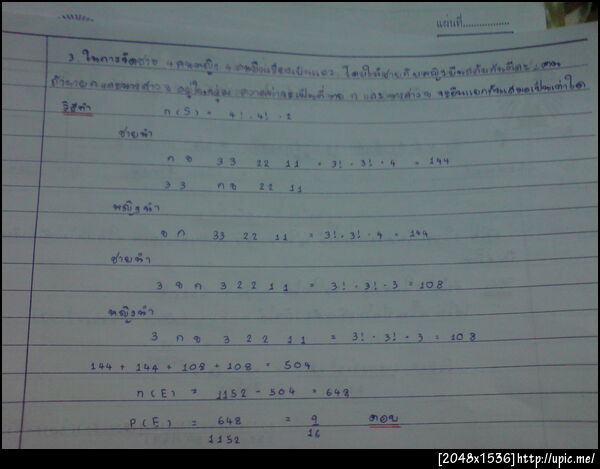 แผ่นที่................
3 ในการจัดชาย 4 คนหญิง 4 คนยืนเรียงเป็นแถว โดยให้ชายกับหญิงยืนสลับกันทีละ 1 คน
ถ้านาย ก และนางสาว ข อยู่ในกลุ่ม ความน่าจะเป็นที่นาย ก และนางสาว ข จะยืนแยกกันเสมอเป็นเท่าใด
วิธีทำ n(S) = 4! . 4! . 2
ชายนำ
ก ข 33 22 11 = 3! . 3! . 4 = 144
33 ก ข 22 11
หญิงนำ
ข ก 33 22 11 = 3! . 3! . 4 = 144
ชายนำ
3 ข ก 3 2 2 1 1 = 3! . 3! . 3 = 108
หญิงนำ
3 ก ข 3 2 2 1 1 = 3! . 3! . 3 = 108
144 + 144 + 108 + 108 = 504
n(E) = 1152 - 504 = 648
P(E) = 648 = 9 ตอบ
1152 16
[2048x1536]http://upic.me/